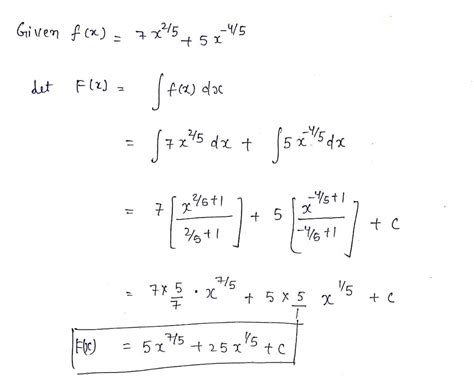 Given f(x) = 7x^{2/5} + 5x^{-4/5}
det F(x) = ∫ f(x) dx
= ∫ 7x^{2/5} dx + ∫ 5x^{-4/5} dx
= 7 [ x^{2/5+1} / (2/5+1) ] + 5 [ x^{-4/5+1} / (-4/5+1) ] + c
= 7 × 5/7 · x^{7/5} + 5 × 5/1 x^{1/5} + c
F(x) = 5x^{7/5} + 25x^{1/5} + c